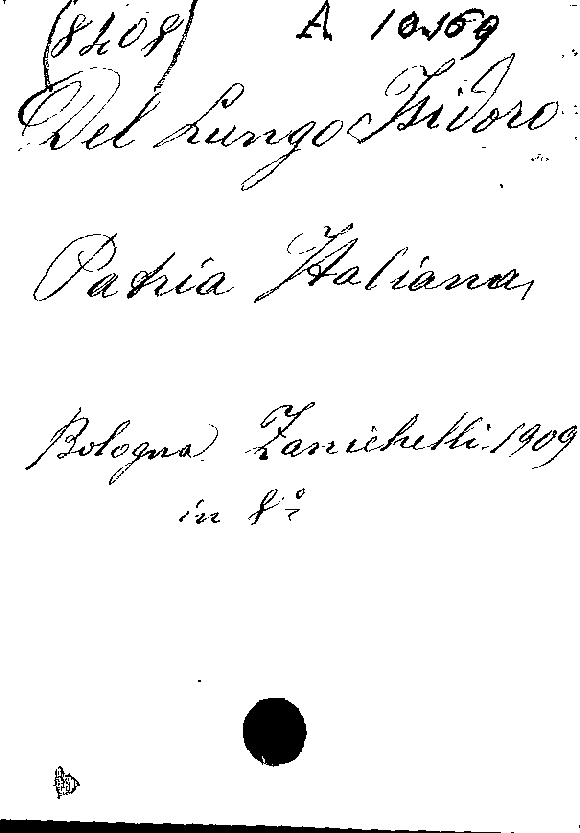 (8408) A 10.169
Del Lungo Isidoro
Patria Italiana,
Bologna Zanichelli 1909
in 8°